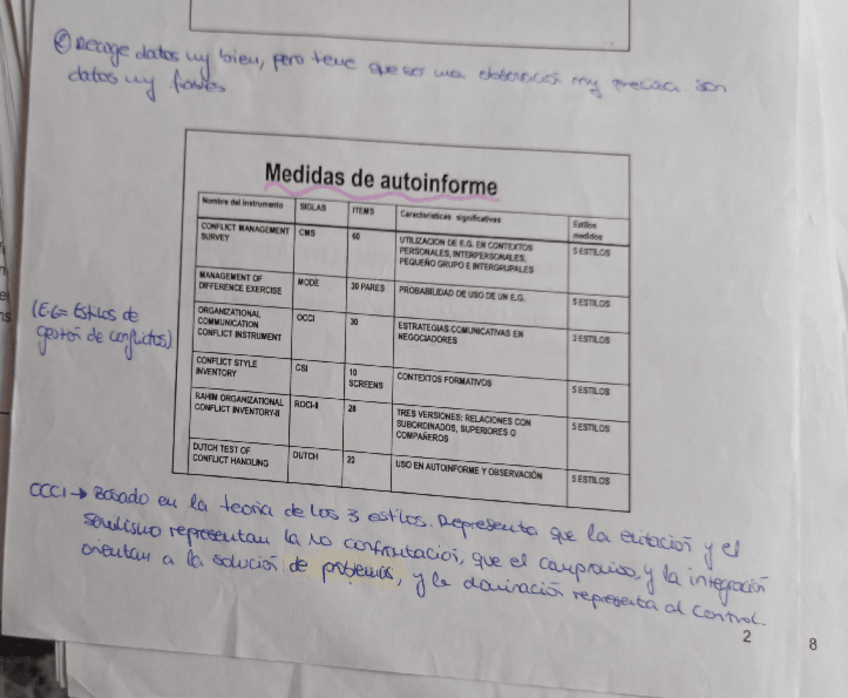 © Recoge datos muy bien, pero tiene que ser una observación muy precisa. Son
datos muy fiables
Medidas de autoinforme
Nombre del instrumento SIGLAS ITEMS Características significativas Estilos medidos
CONFLICT MANAGEMENT SURVEY CMS 60 UTILIZACION DE E.G. EN CONTEXTOS PERSONALES, INTERPERSONALES, PEQUEÑO GRUPO E INTERGRUPALES 5 ESTILOS
MANAGEMENT OF DIFFERENCE EXERCISE MODE 30 PARES PROBABILIDAD DE USO DE UN E.G. 5 ESTILOS
(E.G= Estilos de
gestión de conflictos)
ORGANIZATIONAL COMMUNICATION CONFLICT INSTRUMENT OCCI 30 ESTRATEGIAS COMUNICATIVAS EN NEGOCIADORES 3 ESTILOS
CONFLICT STYLE INVENTORY CSI 10 SCREENS CONTEXTOS FORMATIVOS 5 ESTILOS
RAHIM ORGANIZATIONAL CONFLICT INVENTORY-II ROCI-II 28 TRES VERSIONES: RELACIONES CON SUBORDINADOS, SUPERIORES O COMPAÑEROS 5 ESTILOS
DUTCH TEST OF CONFLICT HANDLING DUTCH 22 USO EN AUTOINFORME Y OBSERVACIÓN 5 ESTILOS
OCCI → Basado en la teoría de los 3 estilos. Representa que la evitación y el
servilismo representan la no confrontación, que el compromiso, y la integración
orientan a la solución de problemas, y la dominación representa al control.
2
8